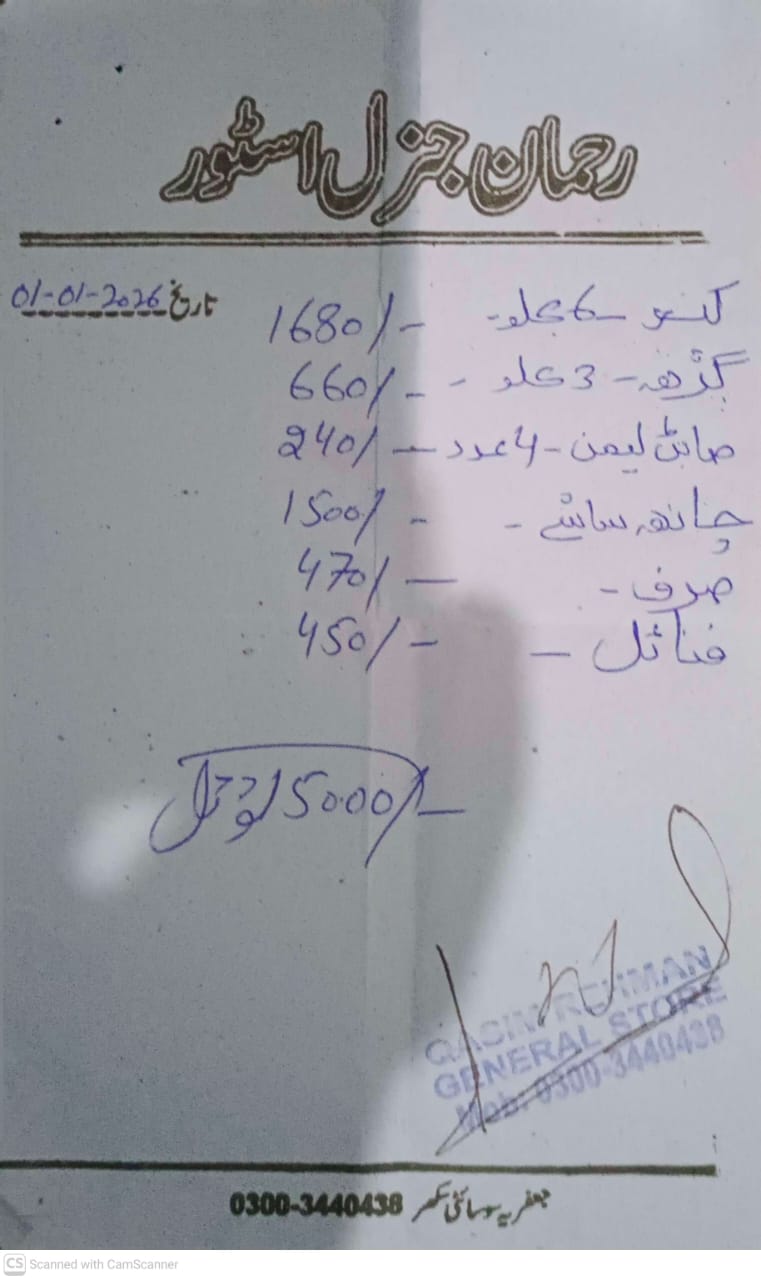 رحمان جنرل اسٹور
تاریخ 01-01-2026
6 کلو - 1680/-
3 کلو - 660/-
صابن لیمن - 4 عدد - 240/-
1500/-
صرف - 470/-
فنائل - 450/-
ٹوٹل 5000/-
QASIM REHMAN
GENERAL STORE
Mob: 0300-3440438
جعفریہ سوسائٹی سکھر 0300-3440438
CS Scanned with CamScanner